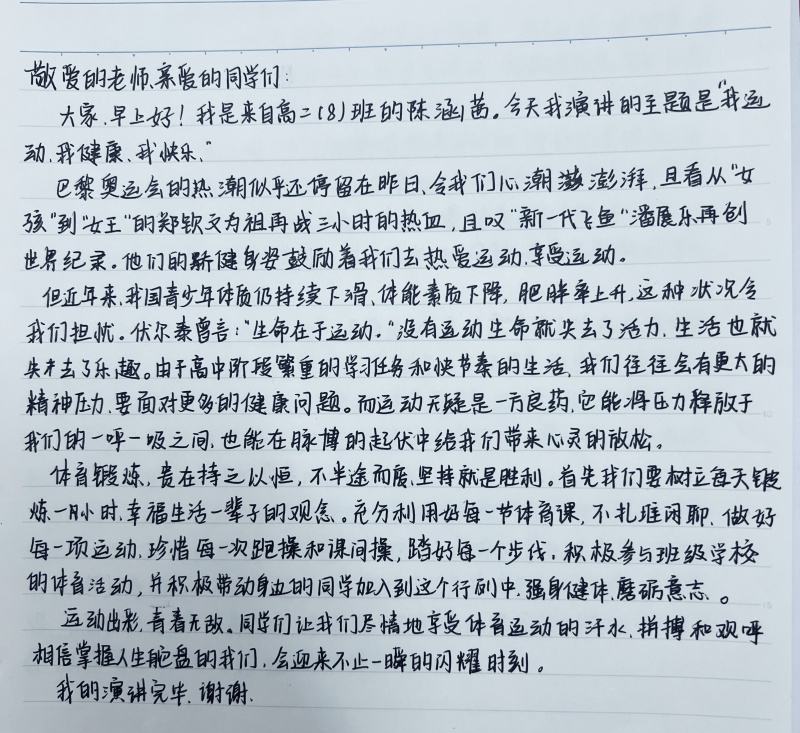 敬爱的老师、亲爱的同学们:
大家,早上好!我是来自高二(8)班的陈涵茜。今天我演讲的主题是“我运
动、我健康、我快乐”
巴黎奥运会的热潮似乎还停留在昨日、令我们心潮澎湃,且看从“女
孩”到“女王”的郑钦文为祖再战三小时的热血,且叹“新一代飞鱼”潘展乐再创
世界纪录。他们的矫健身姿鼓励着我们去热爱运动、享受运动。
但近年来,我国青少年体质仍持续下滑、体能素质下降,肥胖率上升,这种状况令
我们担忧。伏尔泰曾言:“生命在于运动。”没有运动生命就失去了活力,生活也就
失去了乐趣。由于高中阶段繁重的学习任务和快节奏的生活,我们往往会有更大的
精神压力,要面对更多的健康问题。而运动无疑是一方良药,它能将压力释放于
我们的一呼一吸之间,也能在脉搏的起伏中给我们带来心灵的放松。
体育锻炼,贵在持之以恒,不半途而废,坚持就是胜利。首先我们要树立每天锻
炼一小时,幸福生活一辈子的观念。充分利用好每一节体育课,不扎堆闲聊,做好
每一项运动,珍惜每一次跑操和课间操,踏好每一个步伐,积极参与班级学校
的体育活动,并积极带动身边的同学加入到这个行列中,强身健体,磨砺意志。
运动出彩,青春无敌。同学们让我们尽情地享受体育运动的汗水,拼搏和欢呼
相信掌握人生舵盘的我们,会迎来不止一瞬的闪耀时刻。
我的演讲完毕,谢谢.